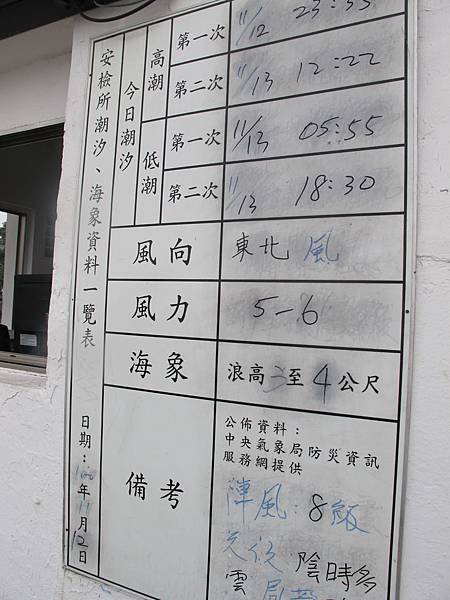 安檢所潮汐、海象資料一覽表
日期:100年11月12日
今日潮汐
高潮
第一次 11/12 23:55
第二次 11/13 12:22
低潮
第一次 11/13 05:55
第二次 11/13 18:30
風向 東北風
風力 5-6
海象 浪高3至4公尺
備考
公佈資料:
中央氣象局防災資訊
服務網提供
陣風:8級
陰時多
雲